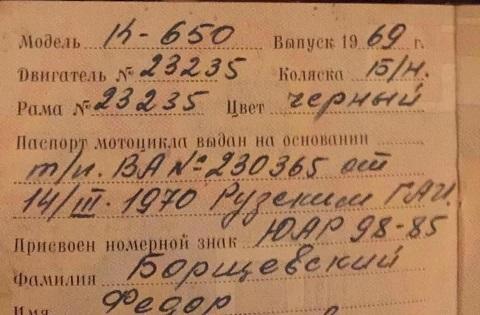 Модель К-650 Выпуск 1969 г.
Двигатель № 23235 Коляска Б/н.
Рама № 23235 Цвет черный
Паспорт мотоцикла выдан на основании
т/п. ВА № 230365 от
14/III. 1970 Рузским ГАИ
Присвоен номерной знак ЮАР 98-85
Фамилия Борщевский
Имя Федор